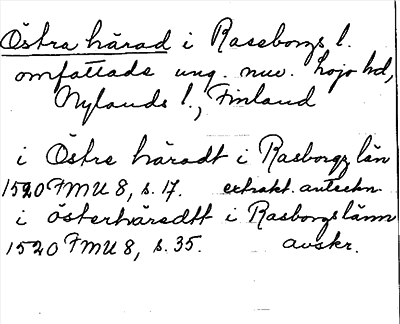 Östra härad i Raseborgs l.
omfattade ung. nuv. Lojo hd,
Nylands l., Finland
i Östre häradt i Rasborgz län
1520 FMU 8, s. 17. extrakt. anteckn
i österhäredtt i Rasborgs länn
1520 FMU 8, s. 35. avskr.